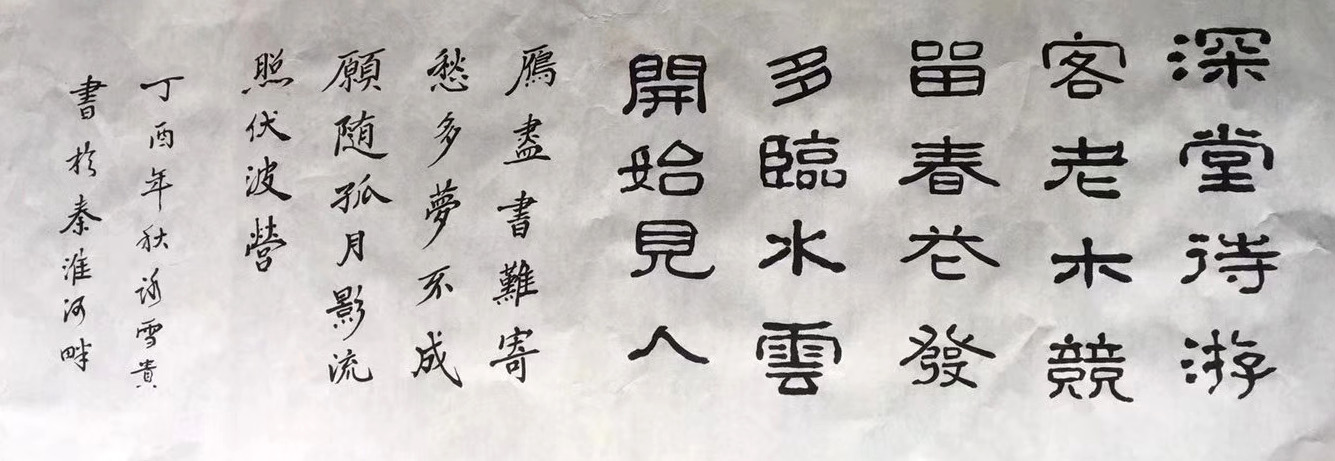 深堂待游
客老木競
畱春花發
多臨水雲
開始見人
鴈盡書難寄
愁多夢不成
願随孤月影流
照伏波營
丁酉年秋詠雪貴
書於秦淮河畔